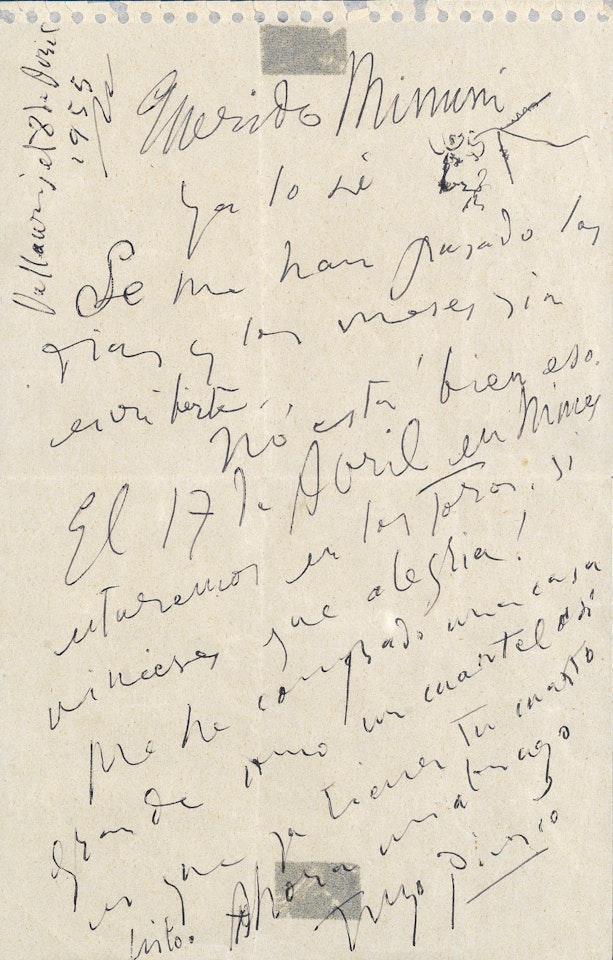 Vallauris el 8 de Abril
1955
Querido Mimuni
ya lo sé
Se me han pasado los
dias y los meses sin
escribirte.
No está bien eso.
El 17 de Abril en Nimes
estaremos en los Toros. si
vinieses que alegria!
Me he comprado una casa
grande como un cuartel asi
es que ya tienes tu cuarto
listo. Ahora un abrazo
Tuyo Picasso